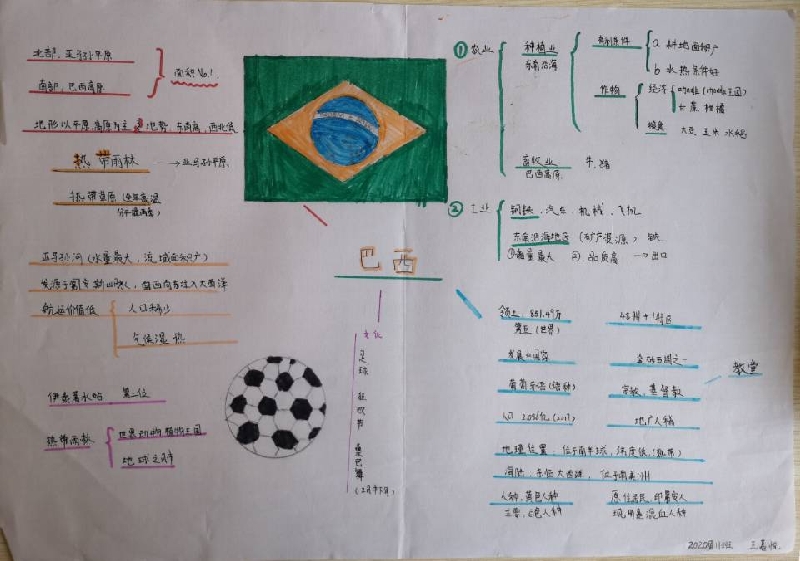 北部，亚马孙平原
南部，巴西高原
面积No.1
地形以平原高原为主 地势，东南高，西北低
热带雨林 → 亚马孙平原
热带草原
亚马孙河（水量最大，流域面积广）
航运价值低
人口稀少
气候湿热
伊泰普水电站 第二位
热带雨林
世界动物植物王国
地球之肺
巴西
文化
足球 狂欢节 桑巴舞
① 农业
种植业
东南沿海
有利条件
a 耕地面积广
b 水热条件好
作物
经济
咖啡（咖啡王国）
可可 柑橘
粮食
大豆 玉米 水稻
畜牧业
巴西高原
牛，猪
② 工业
钢铁，汽车 机械，飞机
东南沿海地区（矿产资源）铁
①储量最大 ② 品质高 → 出口
领土，851.49万
第五（世界）
发展中国家
金砖五国之一
葡萄牙语（语种）
宗教，基督教
教堂
地广人稀
地理位置，位于南半球，纬度低
海陆，东临大西洋，位于南美洲
人种，黄色人种
主要，白色人种
原住居民，印第安人
现，有黑混血人种
2020届